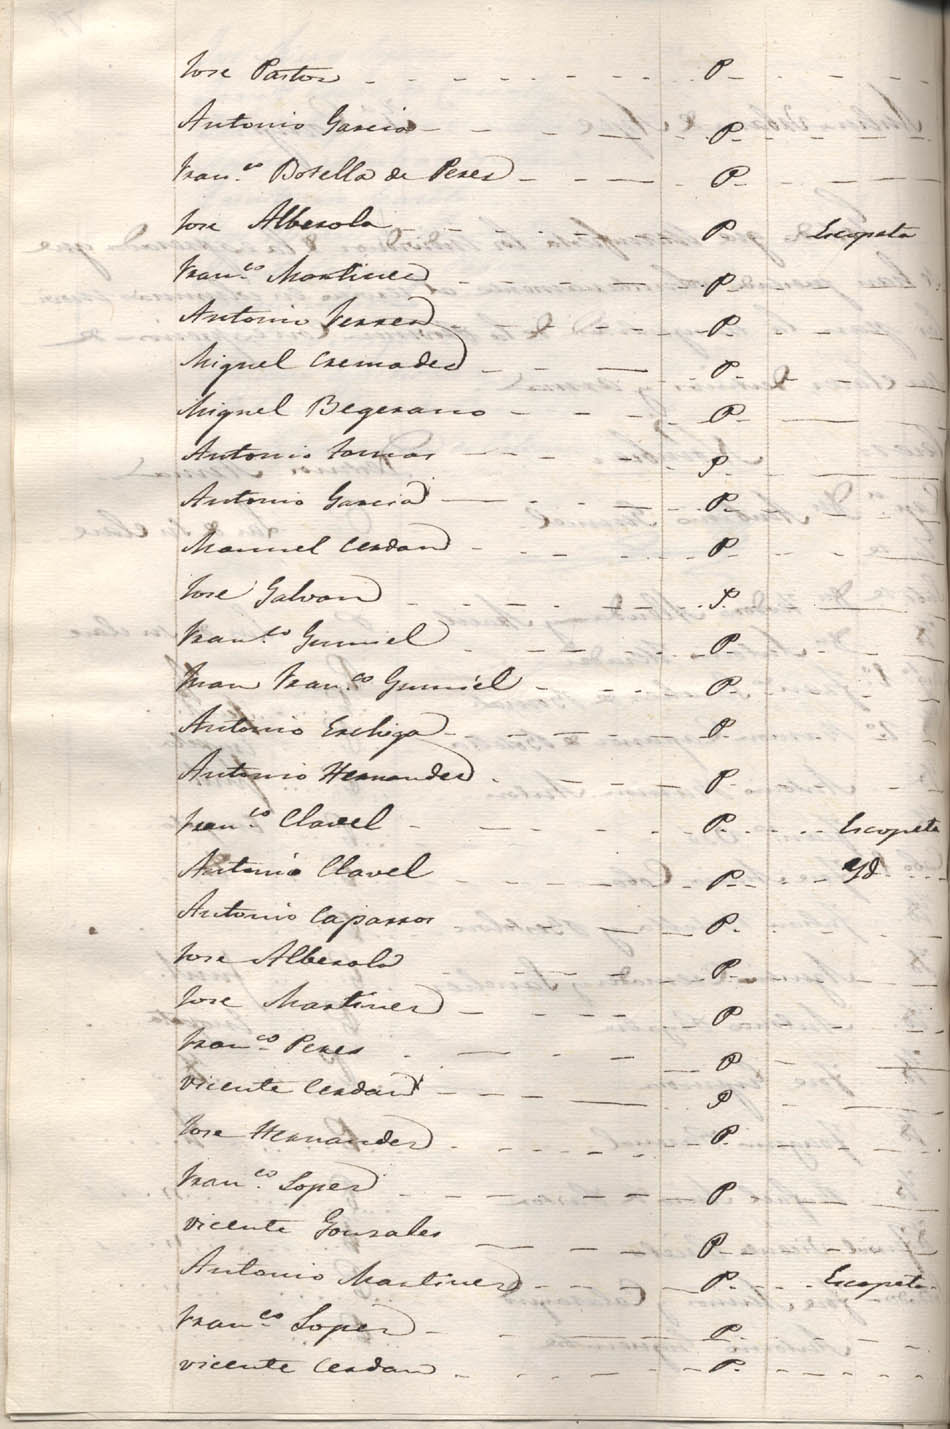 Jose Pastor P
Antonio Garcia P
Fran.co Botella de Peres P
Jose Alberola P Escopeta
Fran.co Martines P
Antonio Ferrer P
Miguel Cremades P
Miguel Begerano P
Antonio Tomas P
Antonio Garcia P
Manuel Cerdan P
Jose Galvan P
Fran.co Gumiel P
Juan Fran.co Gumiel P
Antonio P
Antonio Hernandes P
Fran.co Clavel P Escopeta
Antonio Clavel P Yd
Antonio Caparros P
Jose Alberola P
Jose Martines P
Fran.co Peres P
Vicente Cerdan P
Jose Hernandes P
Fran.co Lopes P
Vicente Gonsales P
Antonio Martines P Escopeta
Fran.co Lopes P
Vicente Cerdan P